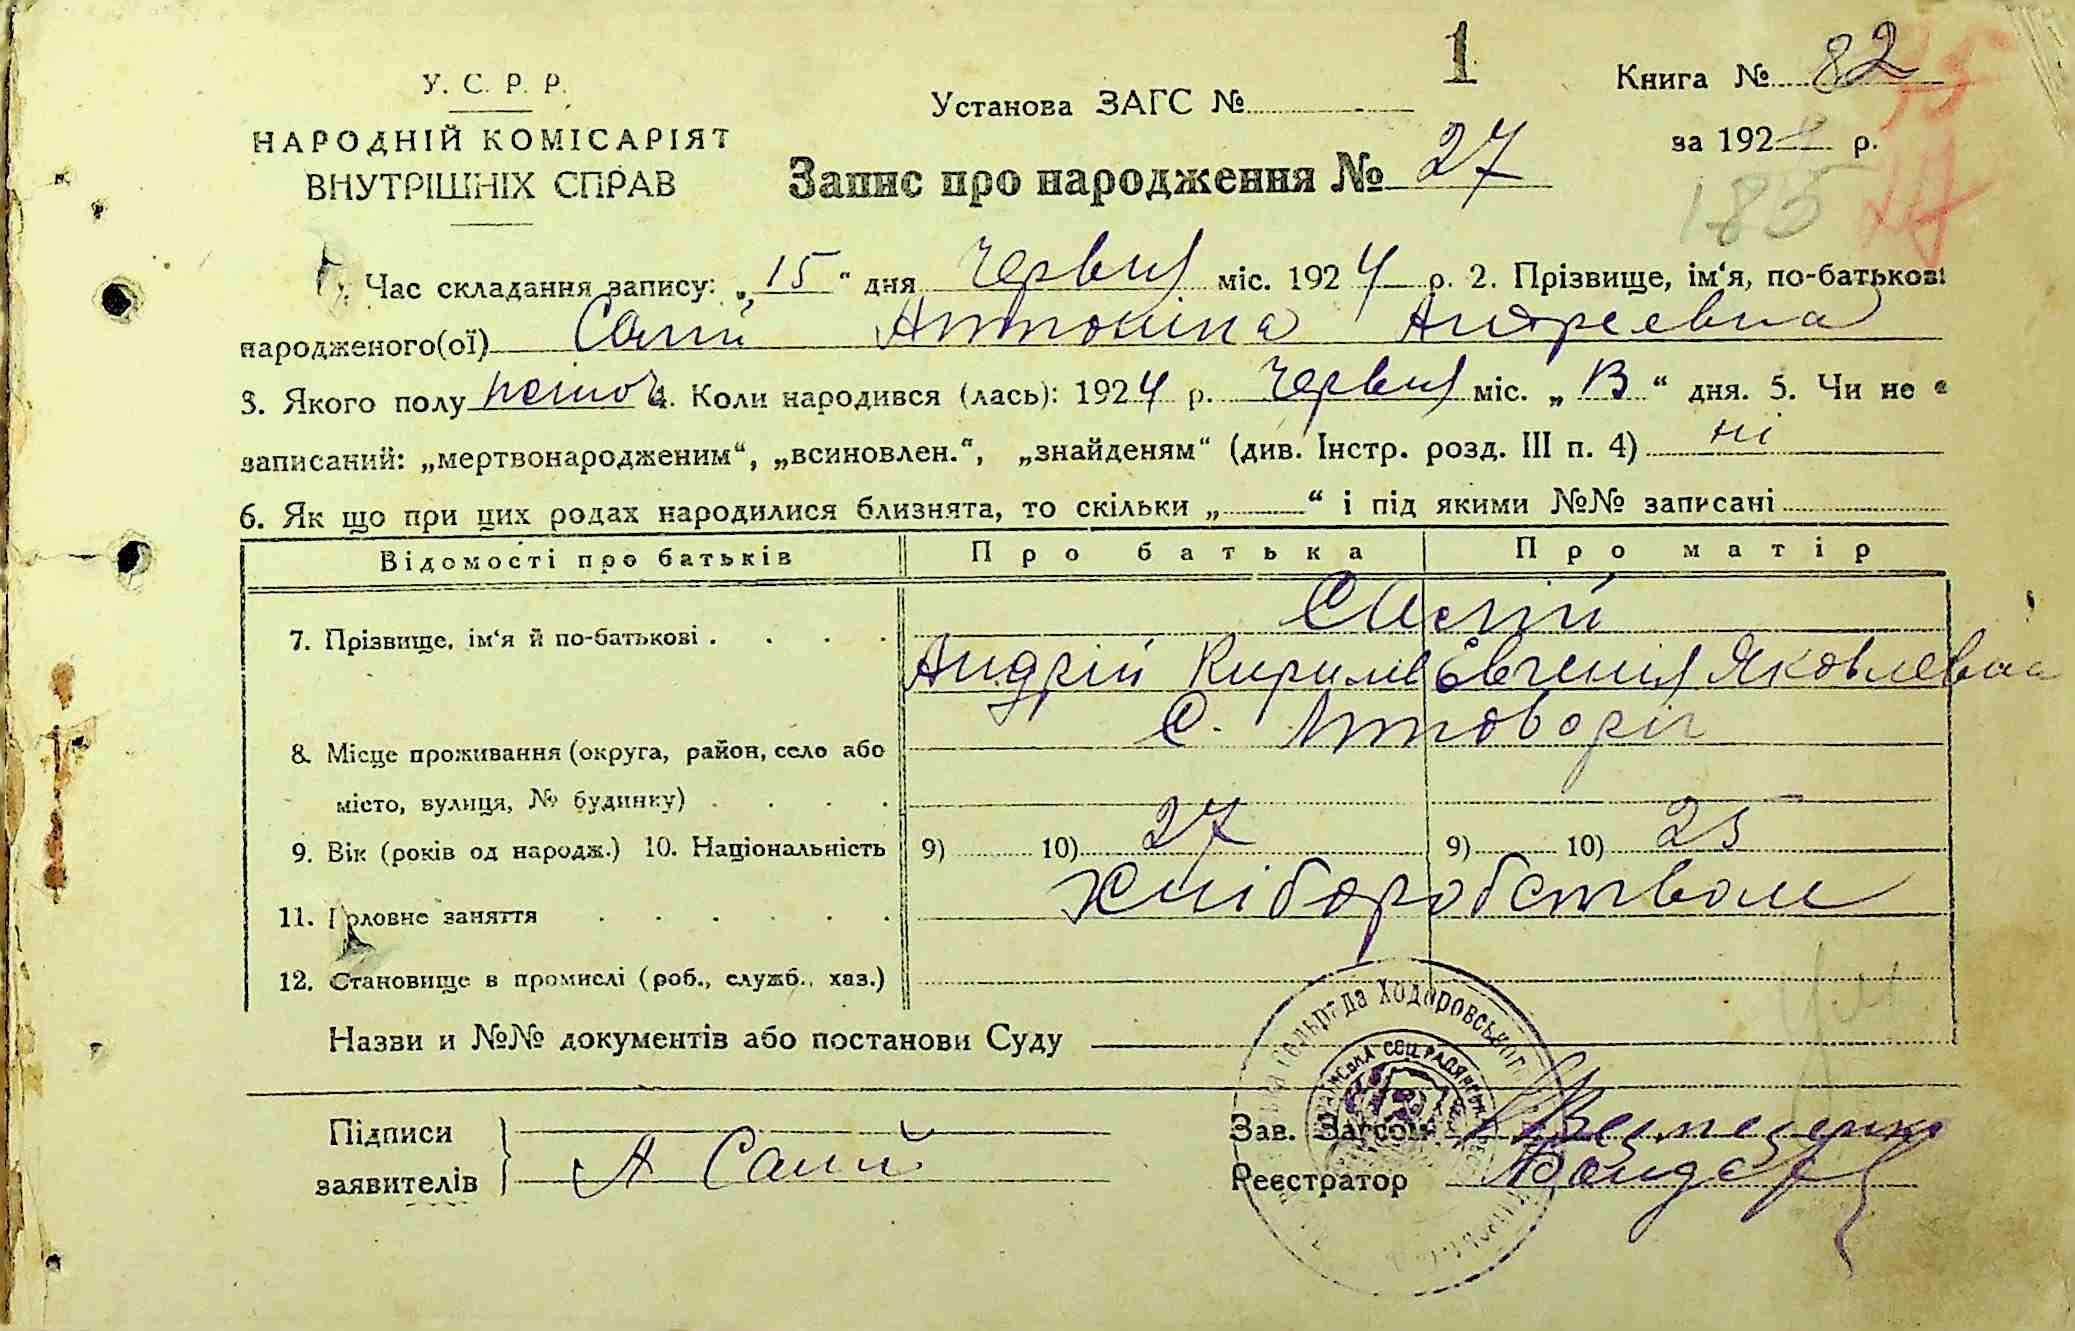 У. С. Р. Р.
НАРОДНІЙ КОМІСАРІЯТ
ВНУТРІШНІХ СПРАВ
1
Установа ЗАГС №
Запис про народження № 27
Книга № 82
за 192 р.
185
Час складання запису: „15“ дня Червня міс. 1924 р. 2. Прізвище, ім‘я, по-батькові
народженого(ої) Салій Антоніна Андреевна
3. Якого полу 4. Коли народився (лась): 1924 р. Червня міс. „13“ дня. 5. Чи не є
записаний: „мертвонародженим“, „всиновлен.“, „знайденям“ (див. Інстр. розд. III п. 4) ні
6. Як що при цих родах народилися близнята, то скільки „ “ і під якими №№ записані
Відомості про батьків Про батька Про матір
7. Прізвище, ім‘я й по-батькові . . . . Салій
Андрій Кирил Евгения Яковлевна
С.
8. Місце проживання (округа, район, село або
місто, вулиця, № будинку) . . . .
9. Вік (років од народж.) 10. Національність 9) 10) 27 9) 10) 25
11. Головне заняття . . . . . . Хліборобством
12. Становище в промислі (роб., служб., хаз.)
Назви и №№ документів або постанови Суду
сельрада Ходоровського
Підписи
заявителів А Салій
Зав. Загсом
Реєстратор